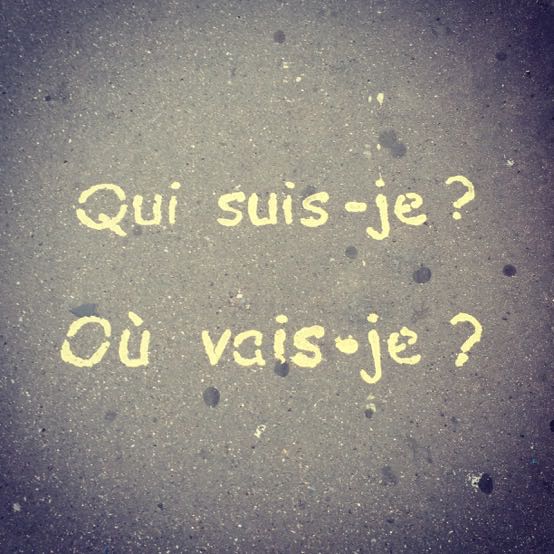 Qui suis-je ?
Où vais-je ?